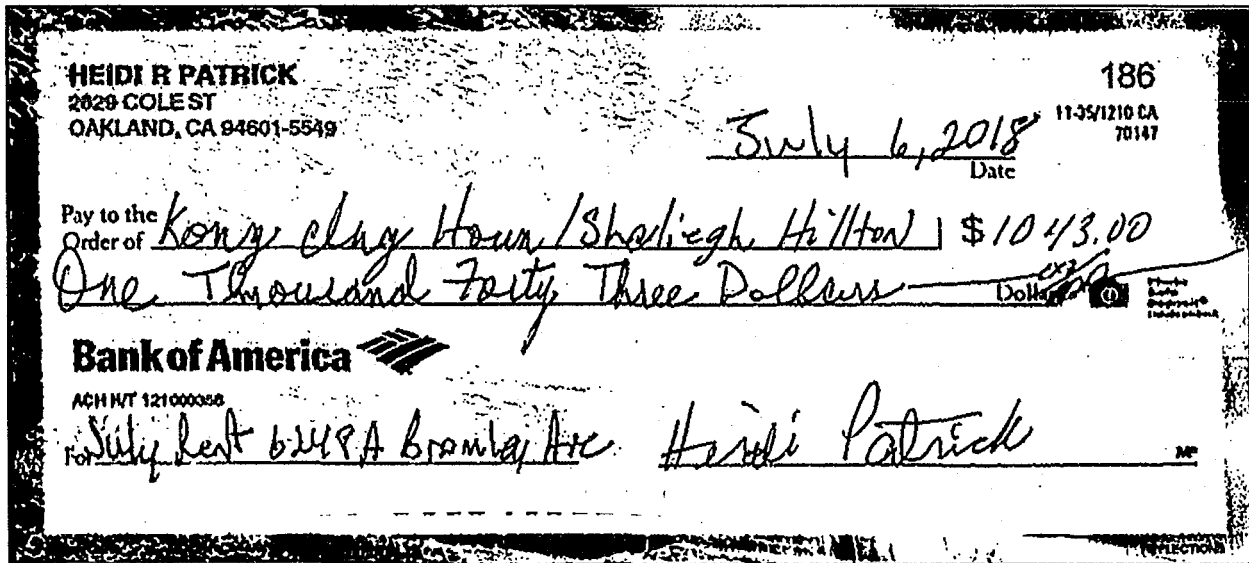 HEIDI R PATRICK
2829 COLE ST
OAKLAND, CA 94601-5549
186
11-35/1210 CA
70147
July 6, 2018
Date
Pay to the
Order of Kong Houn / Shaliegh Hillton $ 1043.00
One Thousand Forty Three Dollars Dollars
Photo
Safe
Deposit®
Bank of America
ACH R/T 121000358
For July Rent 6248 A Ave Heidi Patrick MP